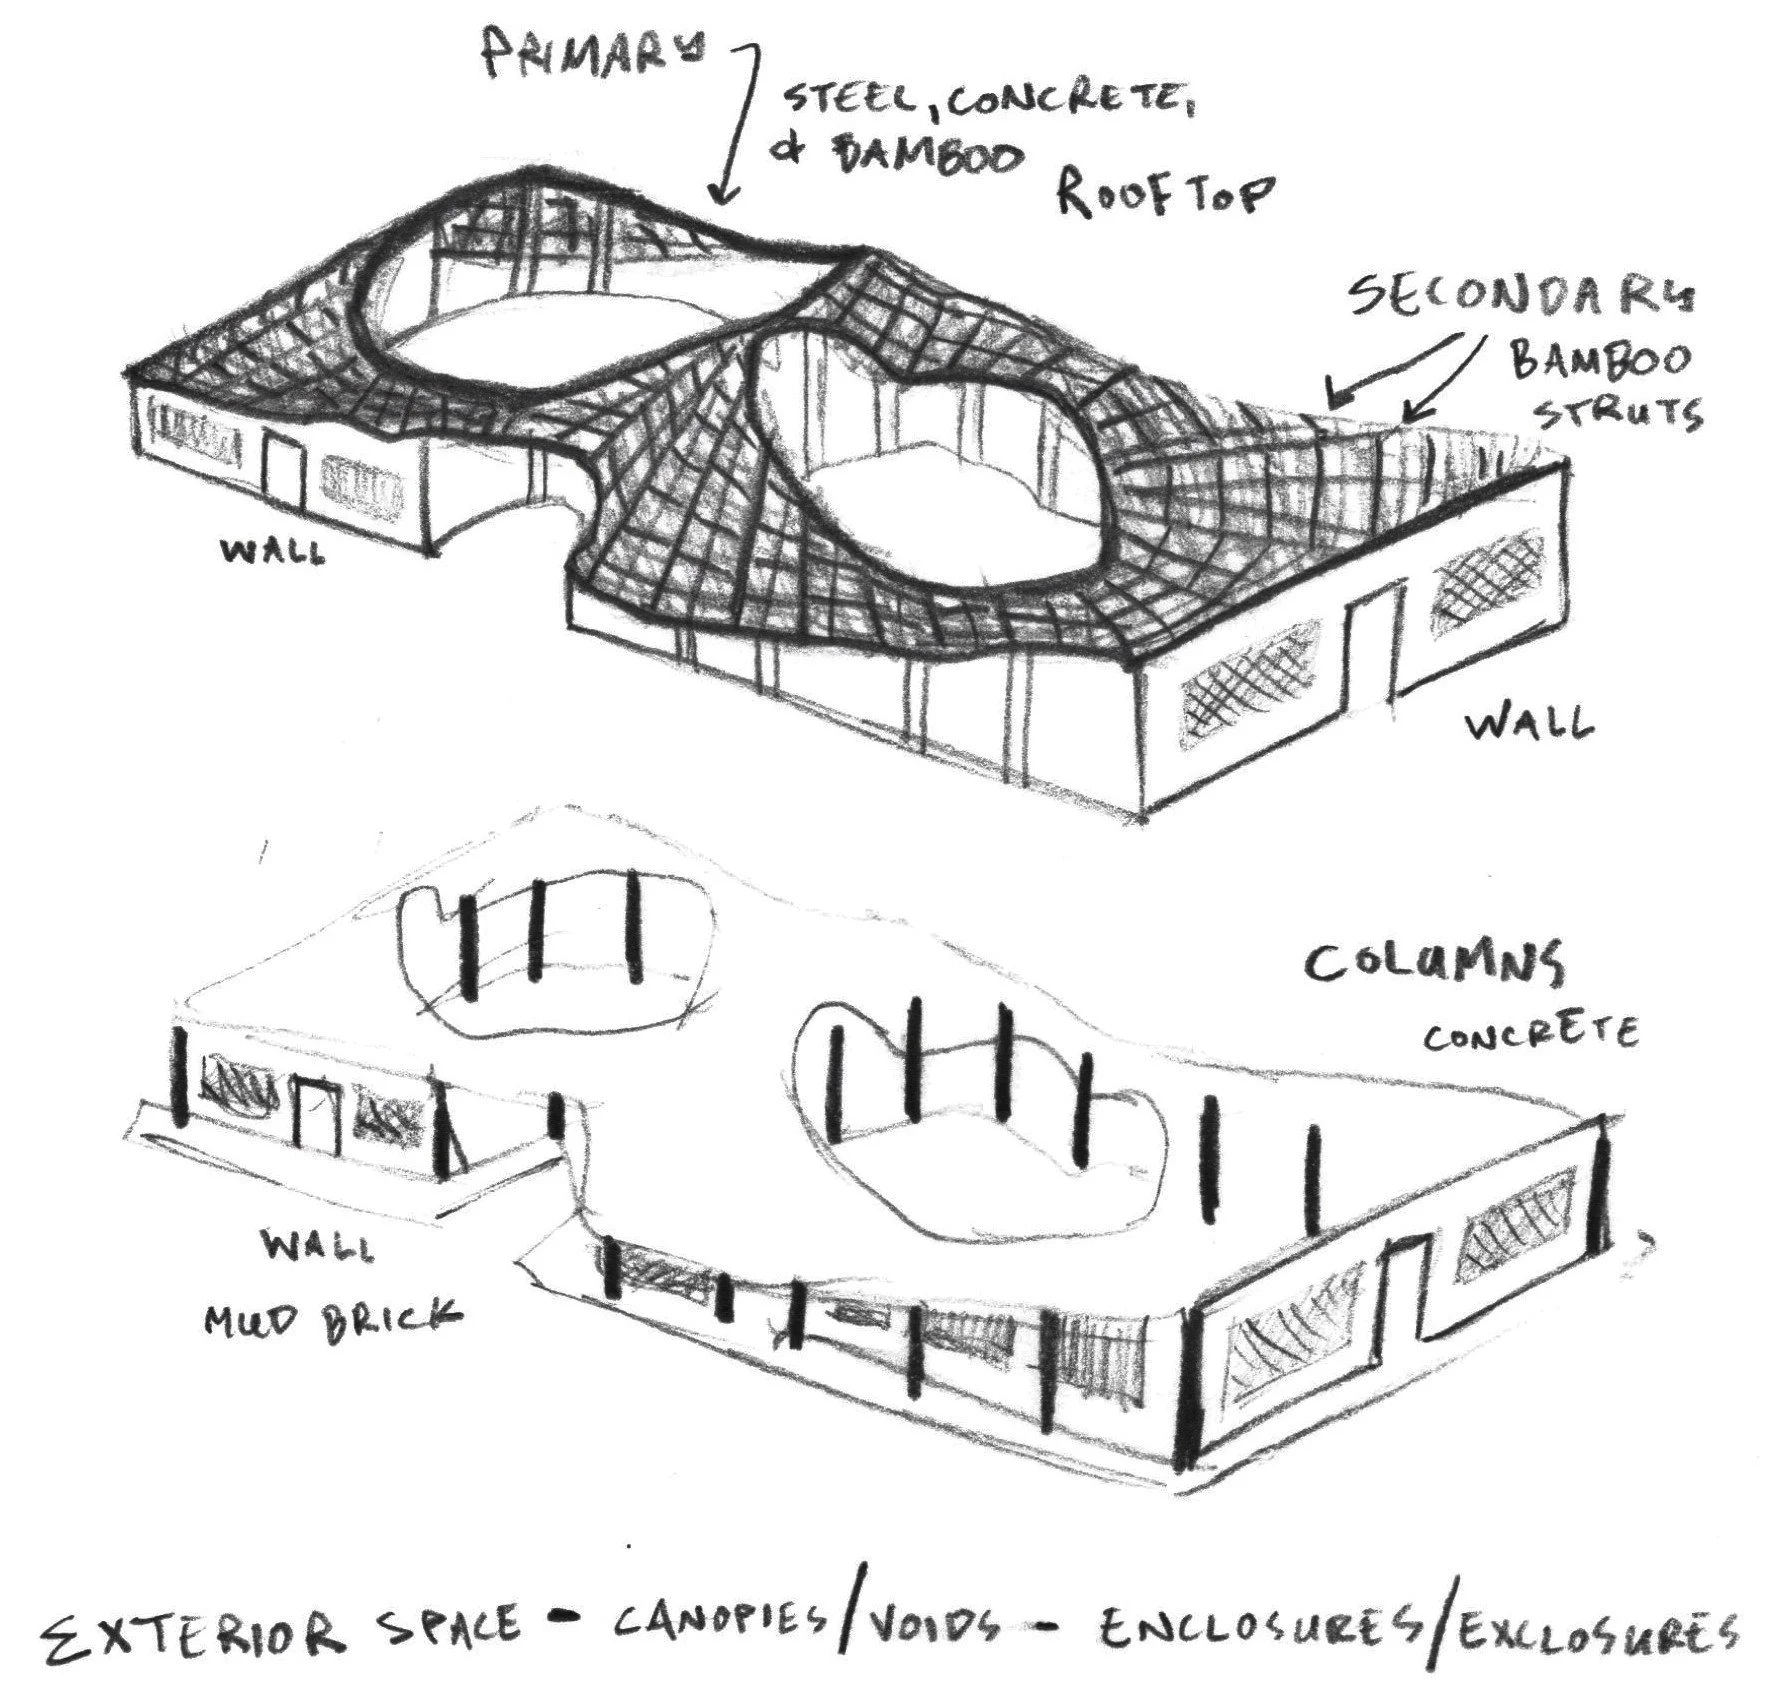 PRIMARY
STEEL, CONCRETE,
& BAMBOO
ROOFTOP
SECONDARY
BAMBOO
STRUTS
WALL
WALL
COLUMNS
CONCRETE
WALL
MUD BRICK
EXTERIOR SPACE - CANOPIES/VOIDS - ENCLOSURES/EXCLOSURES